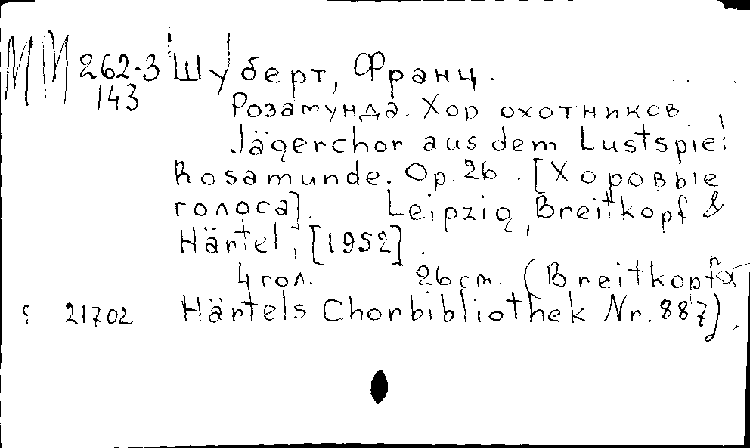 ММ 262-3 Шуберт, Франц.
143
Розамунда. Хор охотников.
Jägerchor aus dem Lustspiel
Rosamunde. Op. 26. [Хоровые
голоса]. Leipzig, Breitkopf &
Härtel, [1952].
4 гол. 26 cm. (Breitkopf &
21702 Härtels Chorbibliothek Nr. 887).